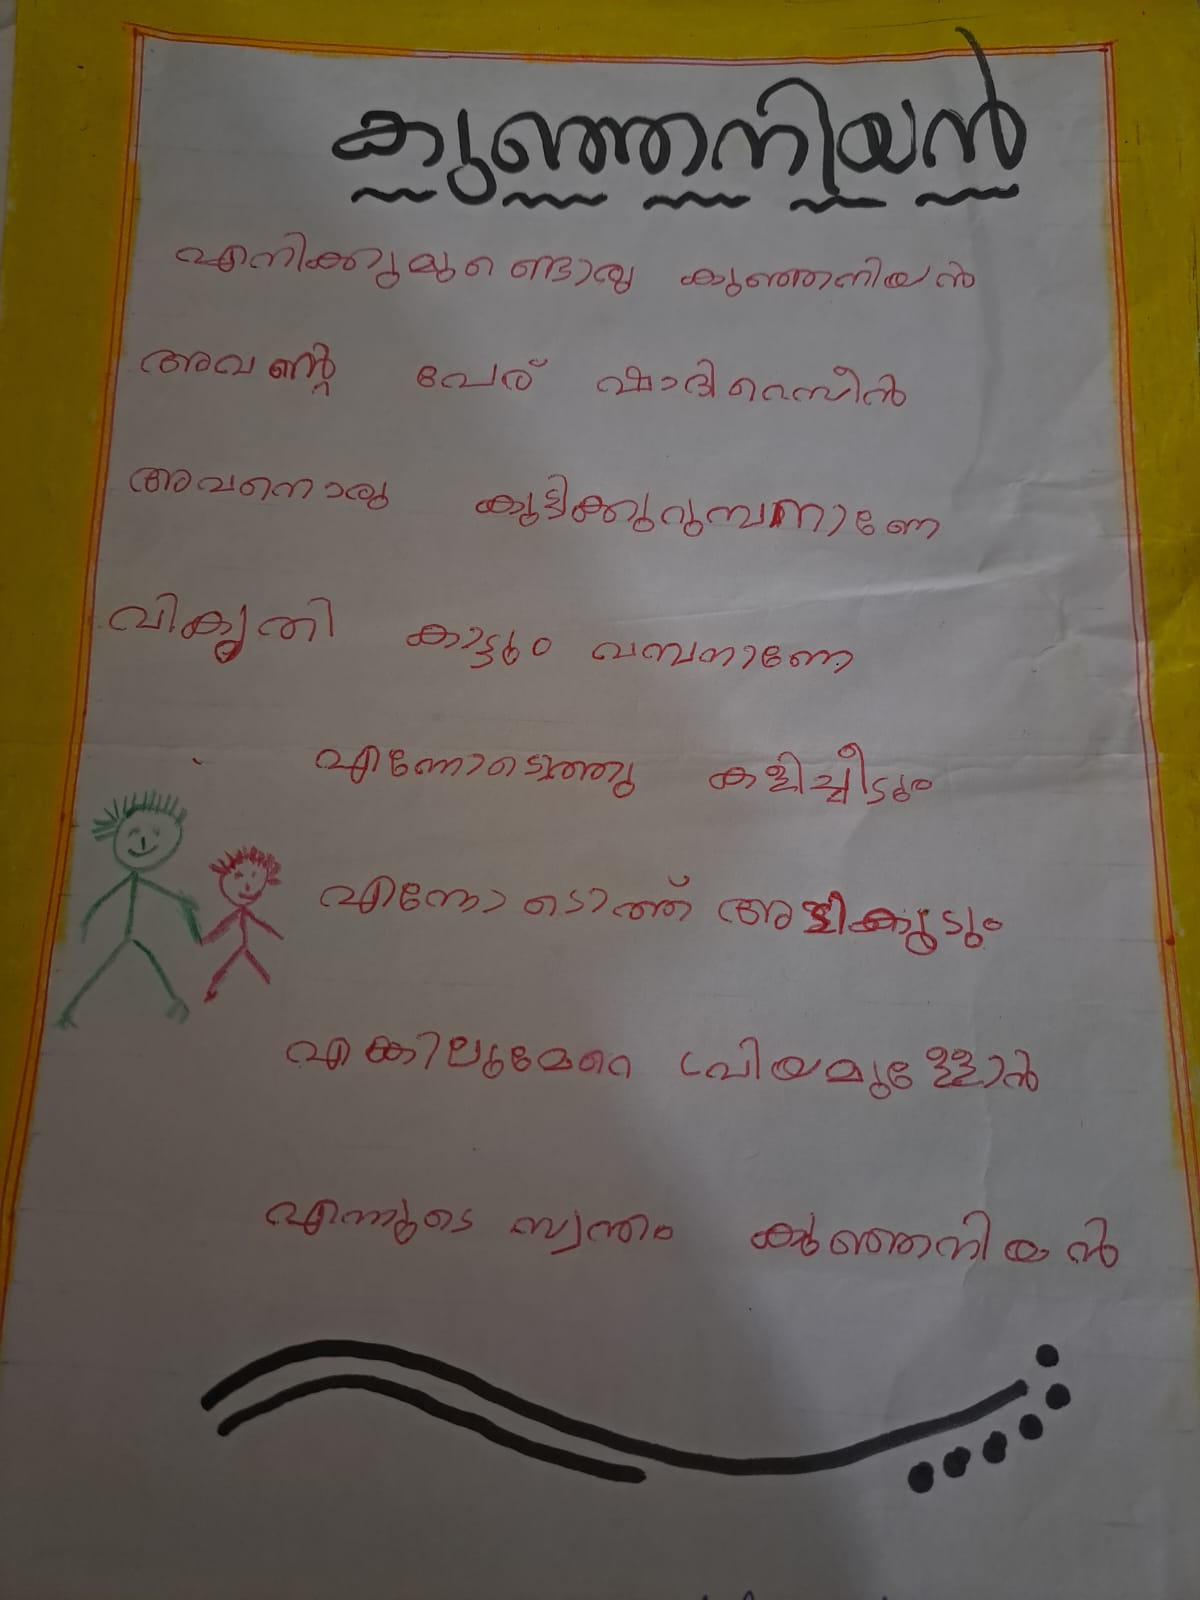 കുഞ്ഞനിയൻ
എനിക്കുമുണ്ടൊരു കുഞ്ഞനിയൻ
അവന്റെ പേര് ഷാദിറെസീൻ
അവനൊരു കുട്ടിക്കുറുമ്പനാണേ
വികൃതി കാട്ടും വമ്പനാണേ
എന്നോടൊത്തു കളിച്ചീടും
എന്നോടൊത്ത് അടികൂടും
എങ്കിലുമേറെ പ്രിയമുള്ളോൻ
എന്നുടെ സ്വന്തം കുഞ്ഞനിയൻ